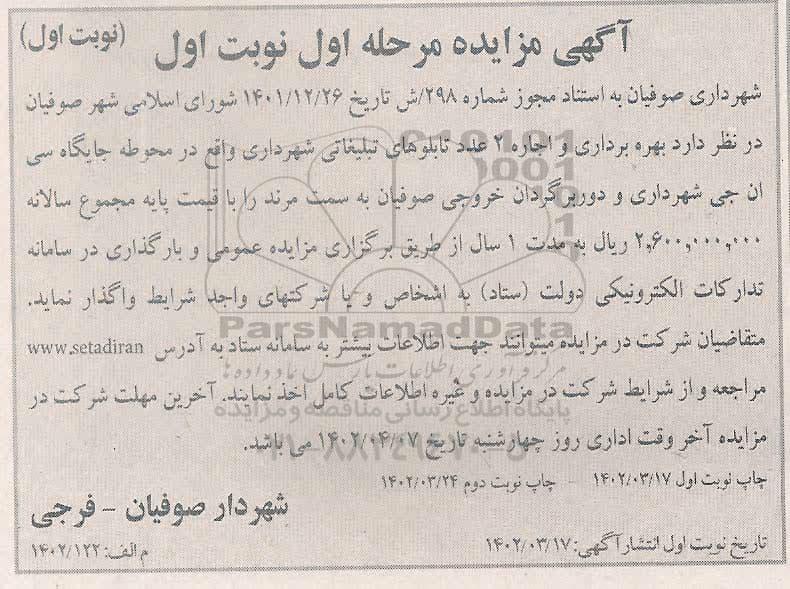 آگهی مزایده مرحله اول نوبت اول (نوبت اول)
شهرداری صوفیان به استناد مجوز شماره ۲۹۸/ش تاریخ ۱۴۰۱/۱۲/۲۶ شورای اسلامی شهر صوفیان
در نظر دارد بهره برداری و اجاره ۲ عدد تابلوهای تبلیغاتی شهرداری واقع در محوطه جایگاه سی
ان جی شهرداری و دوربرگردان خروجی صوفیان به سمت مرند را با قیمت پایه مجموع سالانه
۲,۶۰۰,۰۰۰,۰۰۰ ریال به مدت ۱ سال از طریق برگزاری مزایده عمومی و بارگذاری در سامانه
تدارکات الکترونیکی دولت (ستاد) به اشخاص و یا شرکتهای واجد شرایط واگذار نماید.
ParsNamadData
متقاضیان شرکت در مزایده میتوانند جهت اطلاعات بیشتر به سامانه ستاد به آدرس www.setadiran
مرکز فرآوری اطلاعات پارس نماد داده‌ها
مراجعه و از شرایط شرکت در مزایده و غیره اطلاعات کامل اخذ نمایند. آخرین مهلت شرکت در
پایگاه اطلاع رسانی مناقصه و مزایده
مزایده آخر وقت اداری روز چهارشنبه تاریخ ۱۴۰۲/۰۴/۰۷ می باشد.
چاپ نوبت اول ۱۴۰۲/۰۳/۱۷ - چاپ نوبت دوم ۱۴۰۲/۰۳/۲۴
شهردار صوفیان - فرجی
تاریخ نوبت اول انتشار آگهی: ۱۴۰۲/۰۳/۱۷
م الف: ۱۴۰۲/۱۲۲